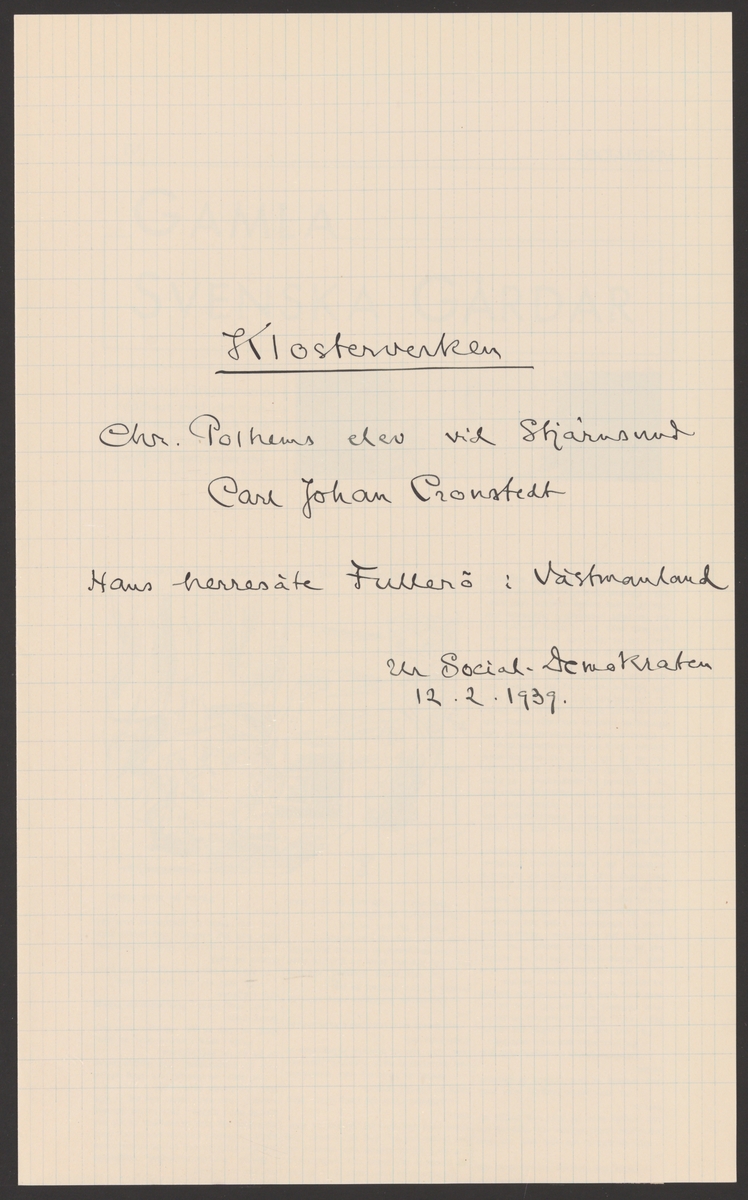 Klosterverken
Chr. Polhems elev vid Stjärnsund
Carl Johan Cronstedt
Hans herresäte Fullerö i Västmanland
Ur Social-Demokraten
12.2.1939.
GAMLA
SVENSKA GÅRDAR